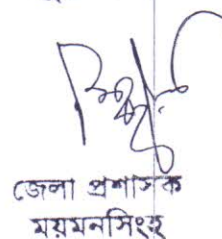 জেলা প্রশাসক
ময়মনসিংহ